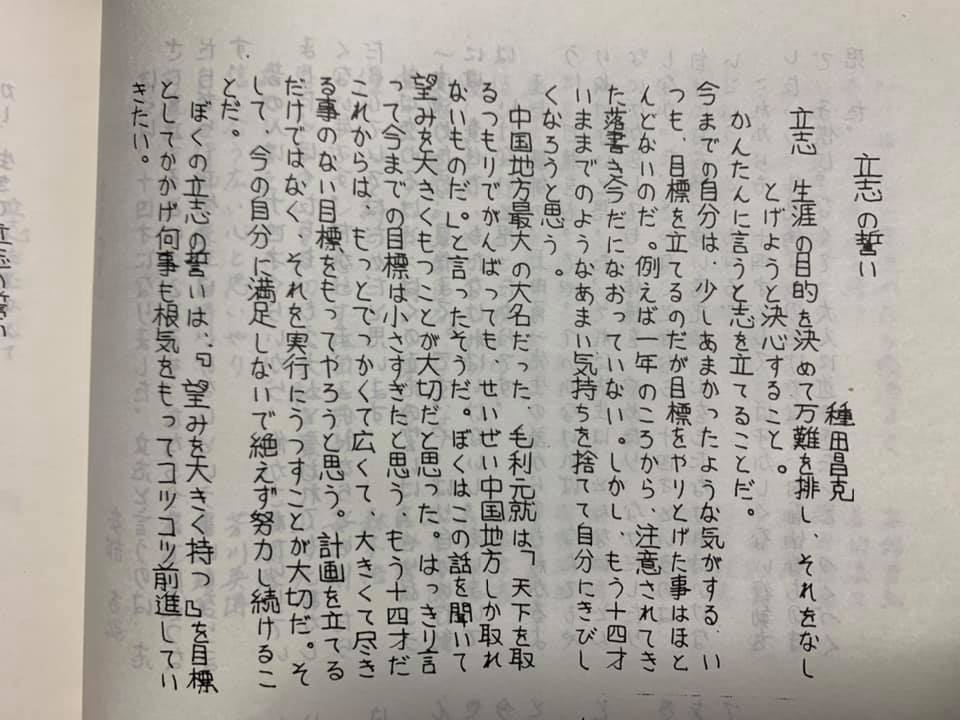 立志の誓い
種田昌克
立志 生涯の目的を決めて万難を排し、それをなし
とげようと決心すること。
かんたんに言うと志を立てることだ。
今までの自分は、少しあまかったような気がする、い
つも、目標を立てるのだが目標をやりとげた事はほと
んどないのだ。例えば一年のころから、注意されてき
た落書き今だになおっていない。しかし、もう十四才
いままでのようなあまい気持ちを捨てて自分にきびし
くなろうと思う。
中国地方最大の大名だった、毛利元就は「天下を取
るつもりでがんばっても、せいぜい中国地方しか取れ
ないものだ」と言ったそうだ。ぼくはこの話を聞いて
望みを大きくもつことが大切だと思った。はっきり言
って今までの目標は小さすぎたと思う、もう十四才だ
これからは、もっとでっかくて広くて、大きくて尽き
る事のない目標をもってやろうと思う。計画を立てる
だけではなく、それを実行にうつすことが大切だ。そ
して、今の自分に満足しないで絶えず努力し続けるこ
とだ。
ぼくの立志の誓いは、『望みを大きく持つ』を目標
としてかかげ何事も根気をもってコツコツ前進してい
きたい。